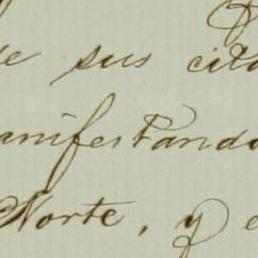 de sus cita
anifestando
Norte, y e